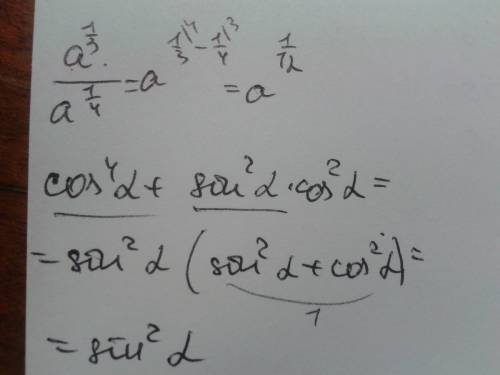 a^{1/3} / a^{1/4} = a^{1/3|4 - 1/4|3} = a^{1/12}
cos⁴α + sin²α · cos²α =
= sin²α (sin²α + cos²α) =
1
= sin²α